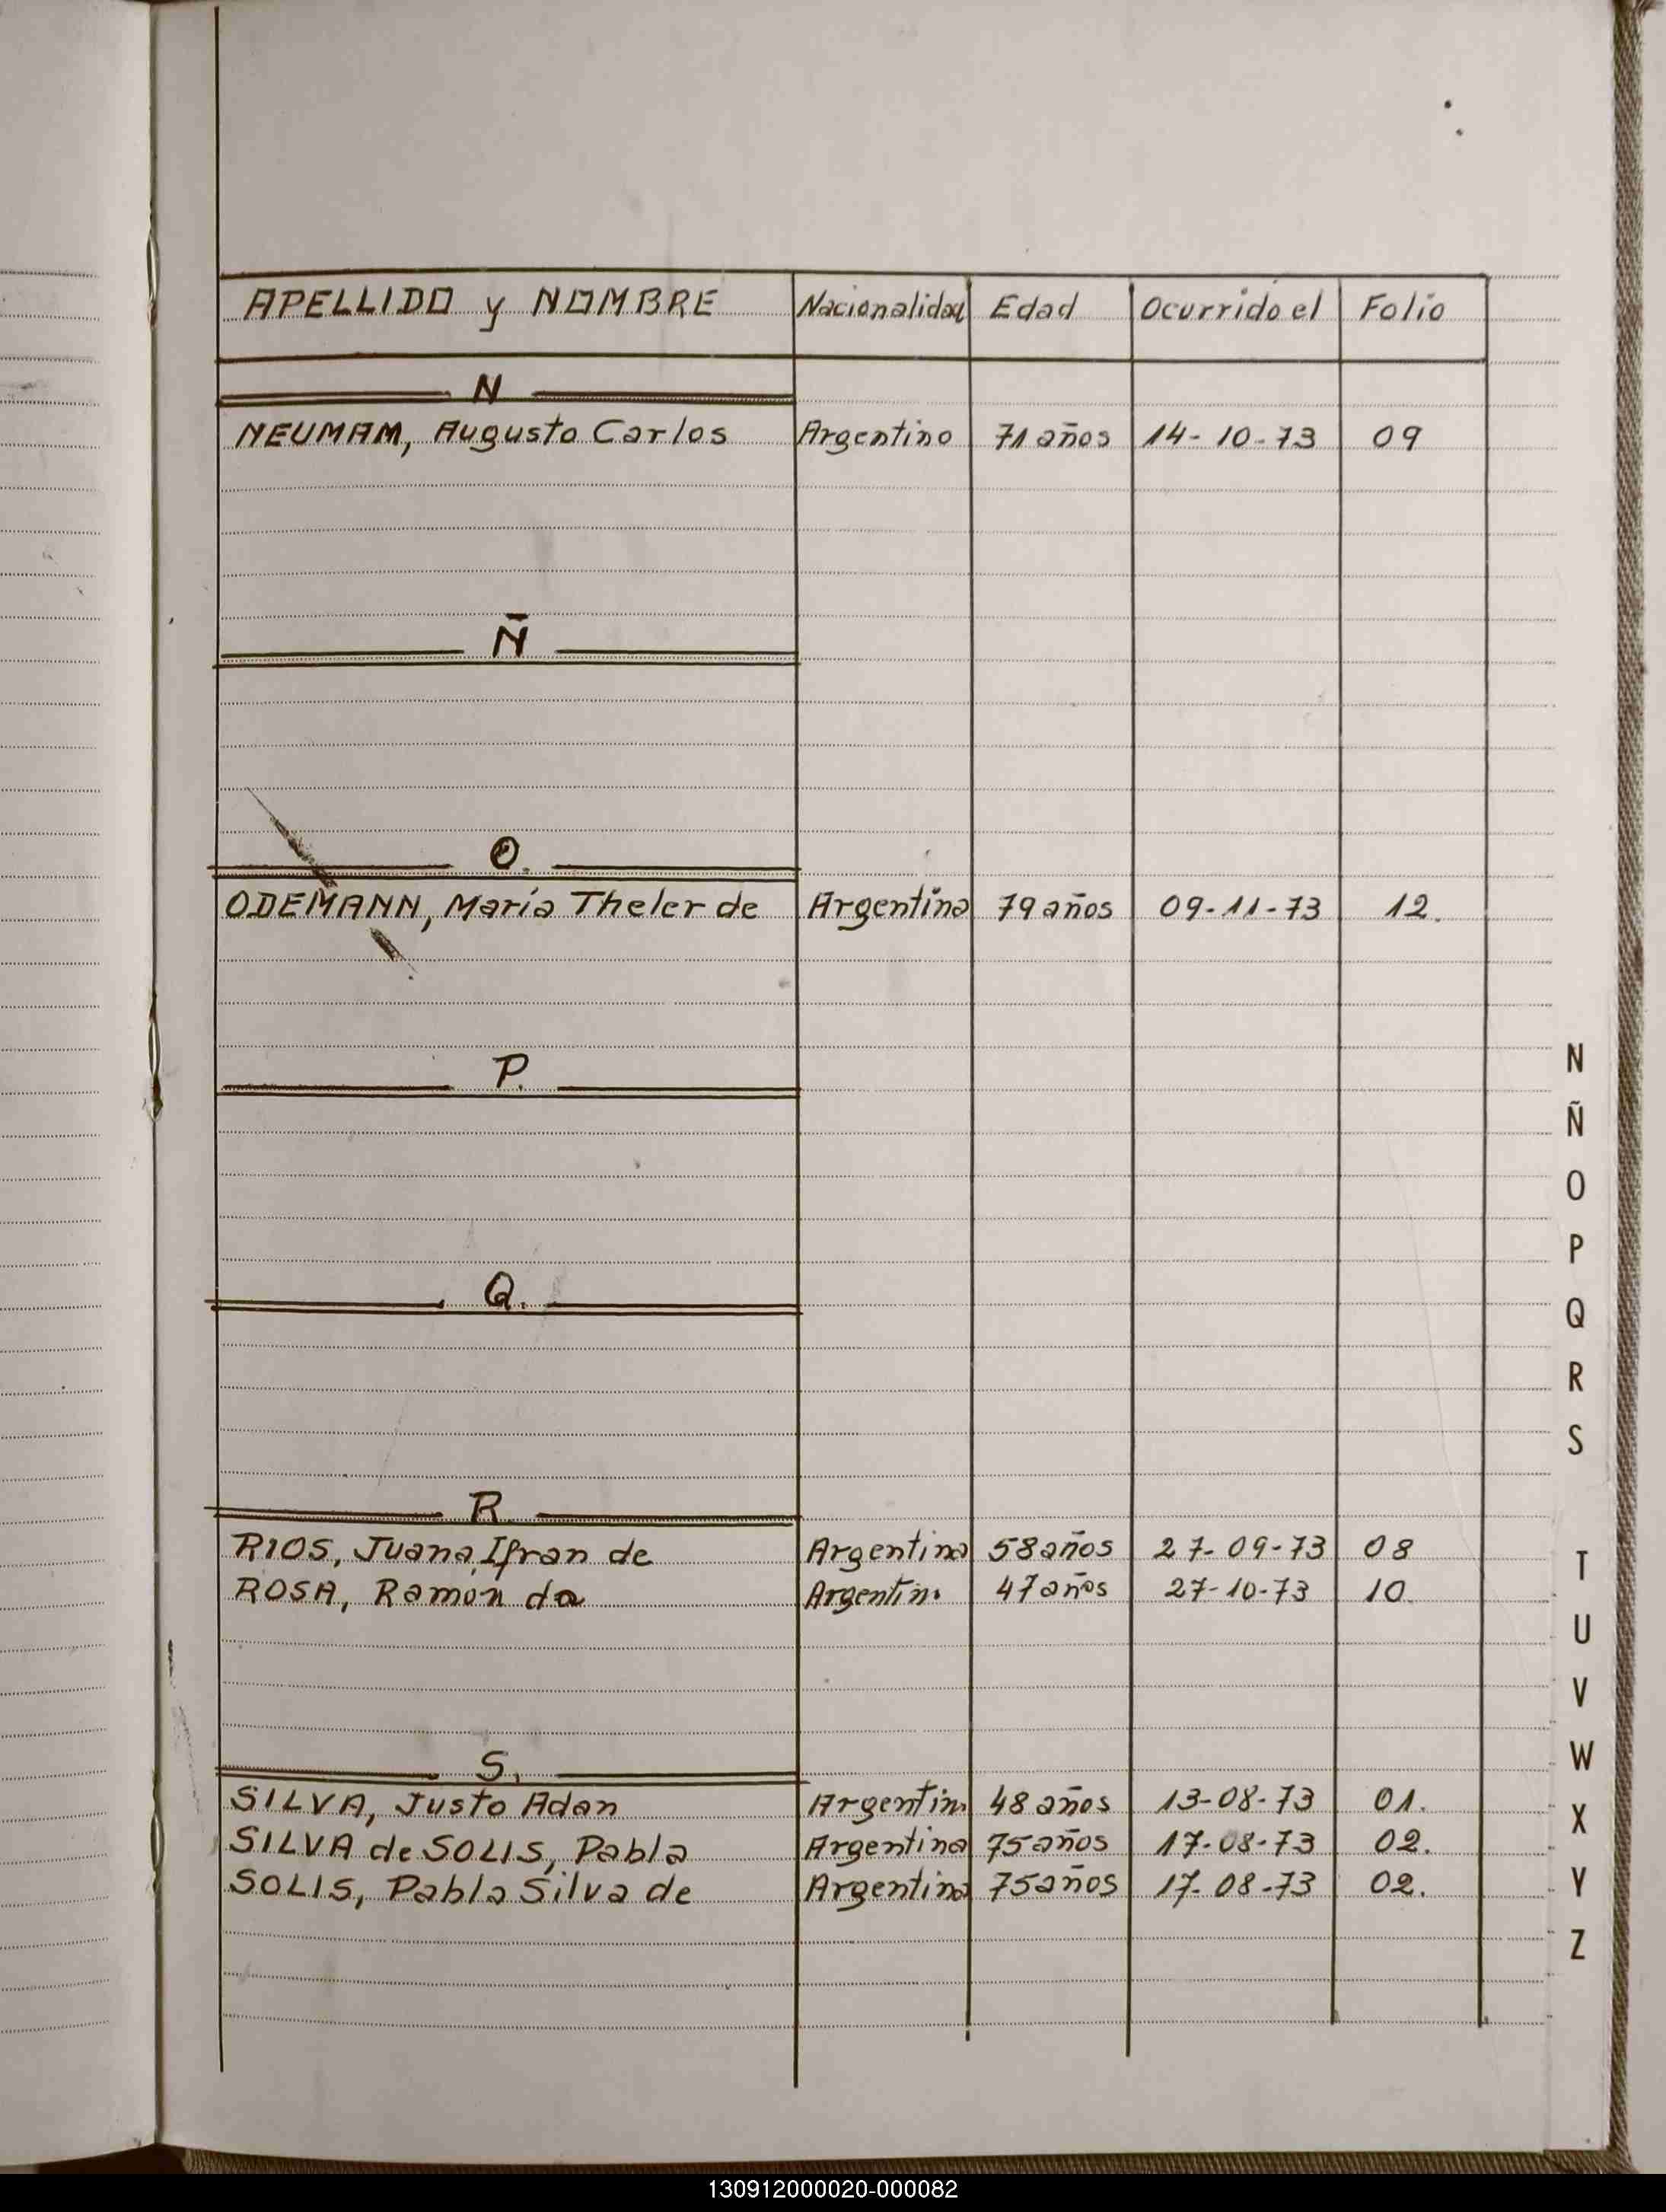 APELLIDO y NOMBRE Nacionalidad Edad Ocurrido el Folio
N
NEUMAM, Augusto Carlos Argentino 71 años 14-10-73 09
Ñ
O.
ODEMANN, María Theler de Argentina 79 años 09-11-73 12.
P.
Q.
R.
RIOS, Juana Ifran de Argentina 58 años 27-09-73 08
ROSA, Ramon da Argentin. 47 años 27-10-73 10.
S.
SILVA, Justo Adan Argentin. 48 años 13-08-73 01.
SILVA de SOLIS, Pabla Argentina 75 años 17-08-73 02.
SOLIS, Pabla Silva de Argentina 75 años 17-08-73 02.
N
Ñ
O
P
Q
R
S
T
U
V
W
X
Y
Z
130912000020-000082